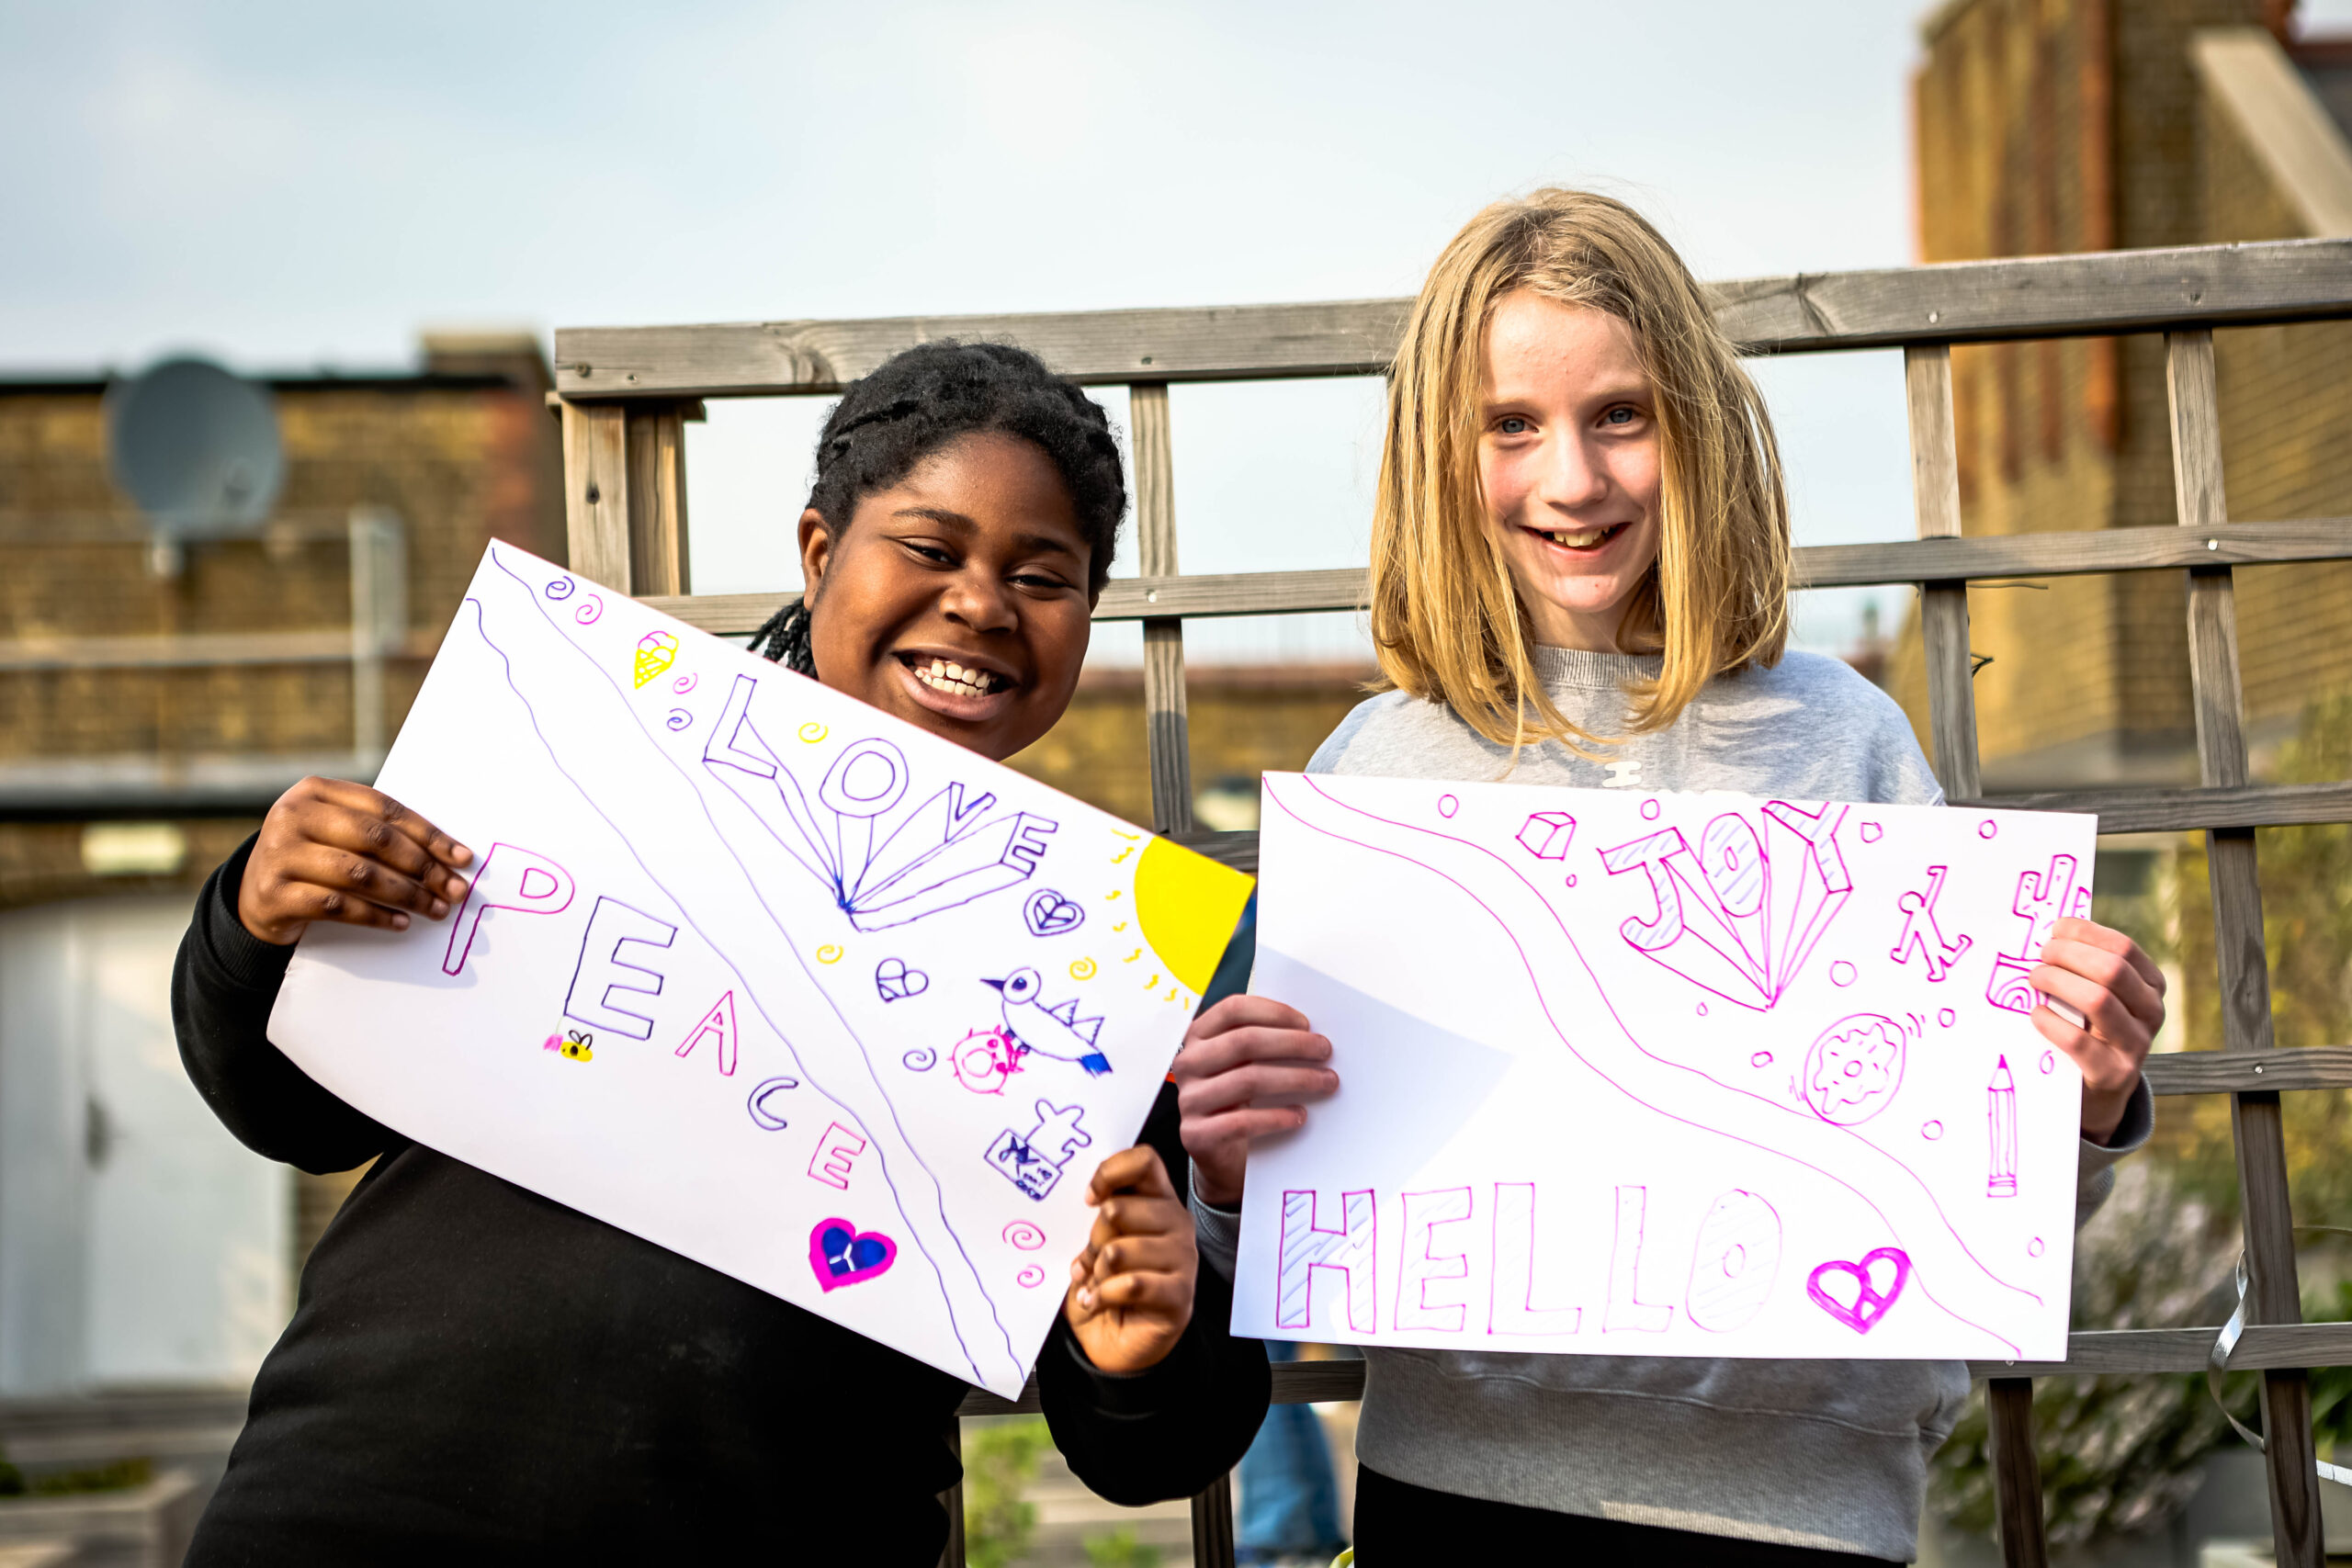 LOVE
PEACE
JOY
HELLO